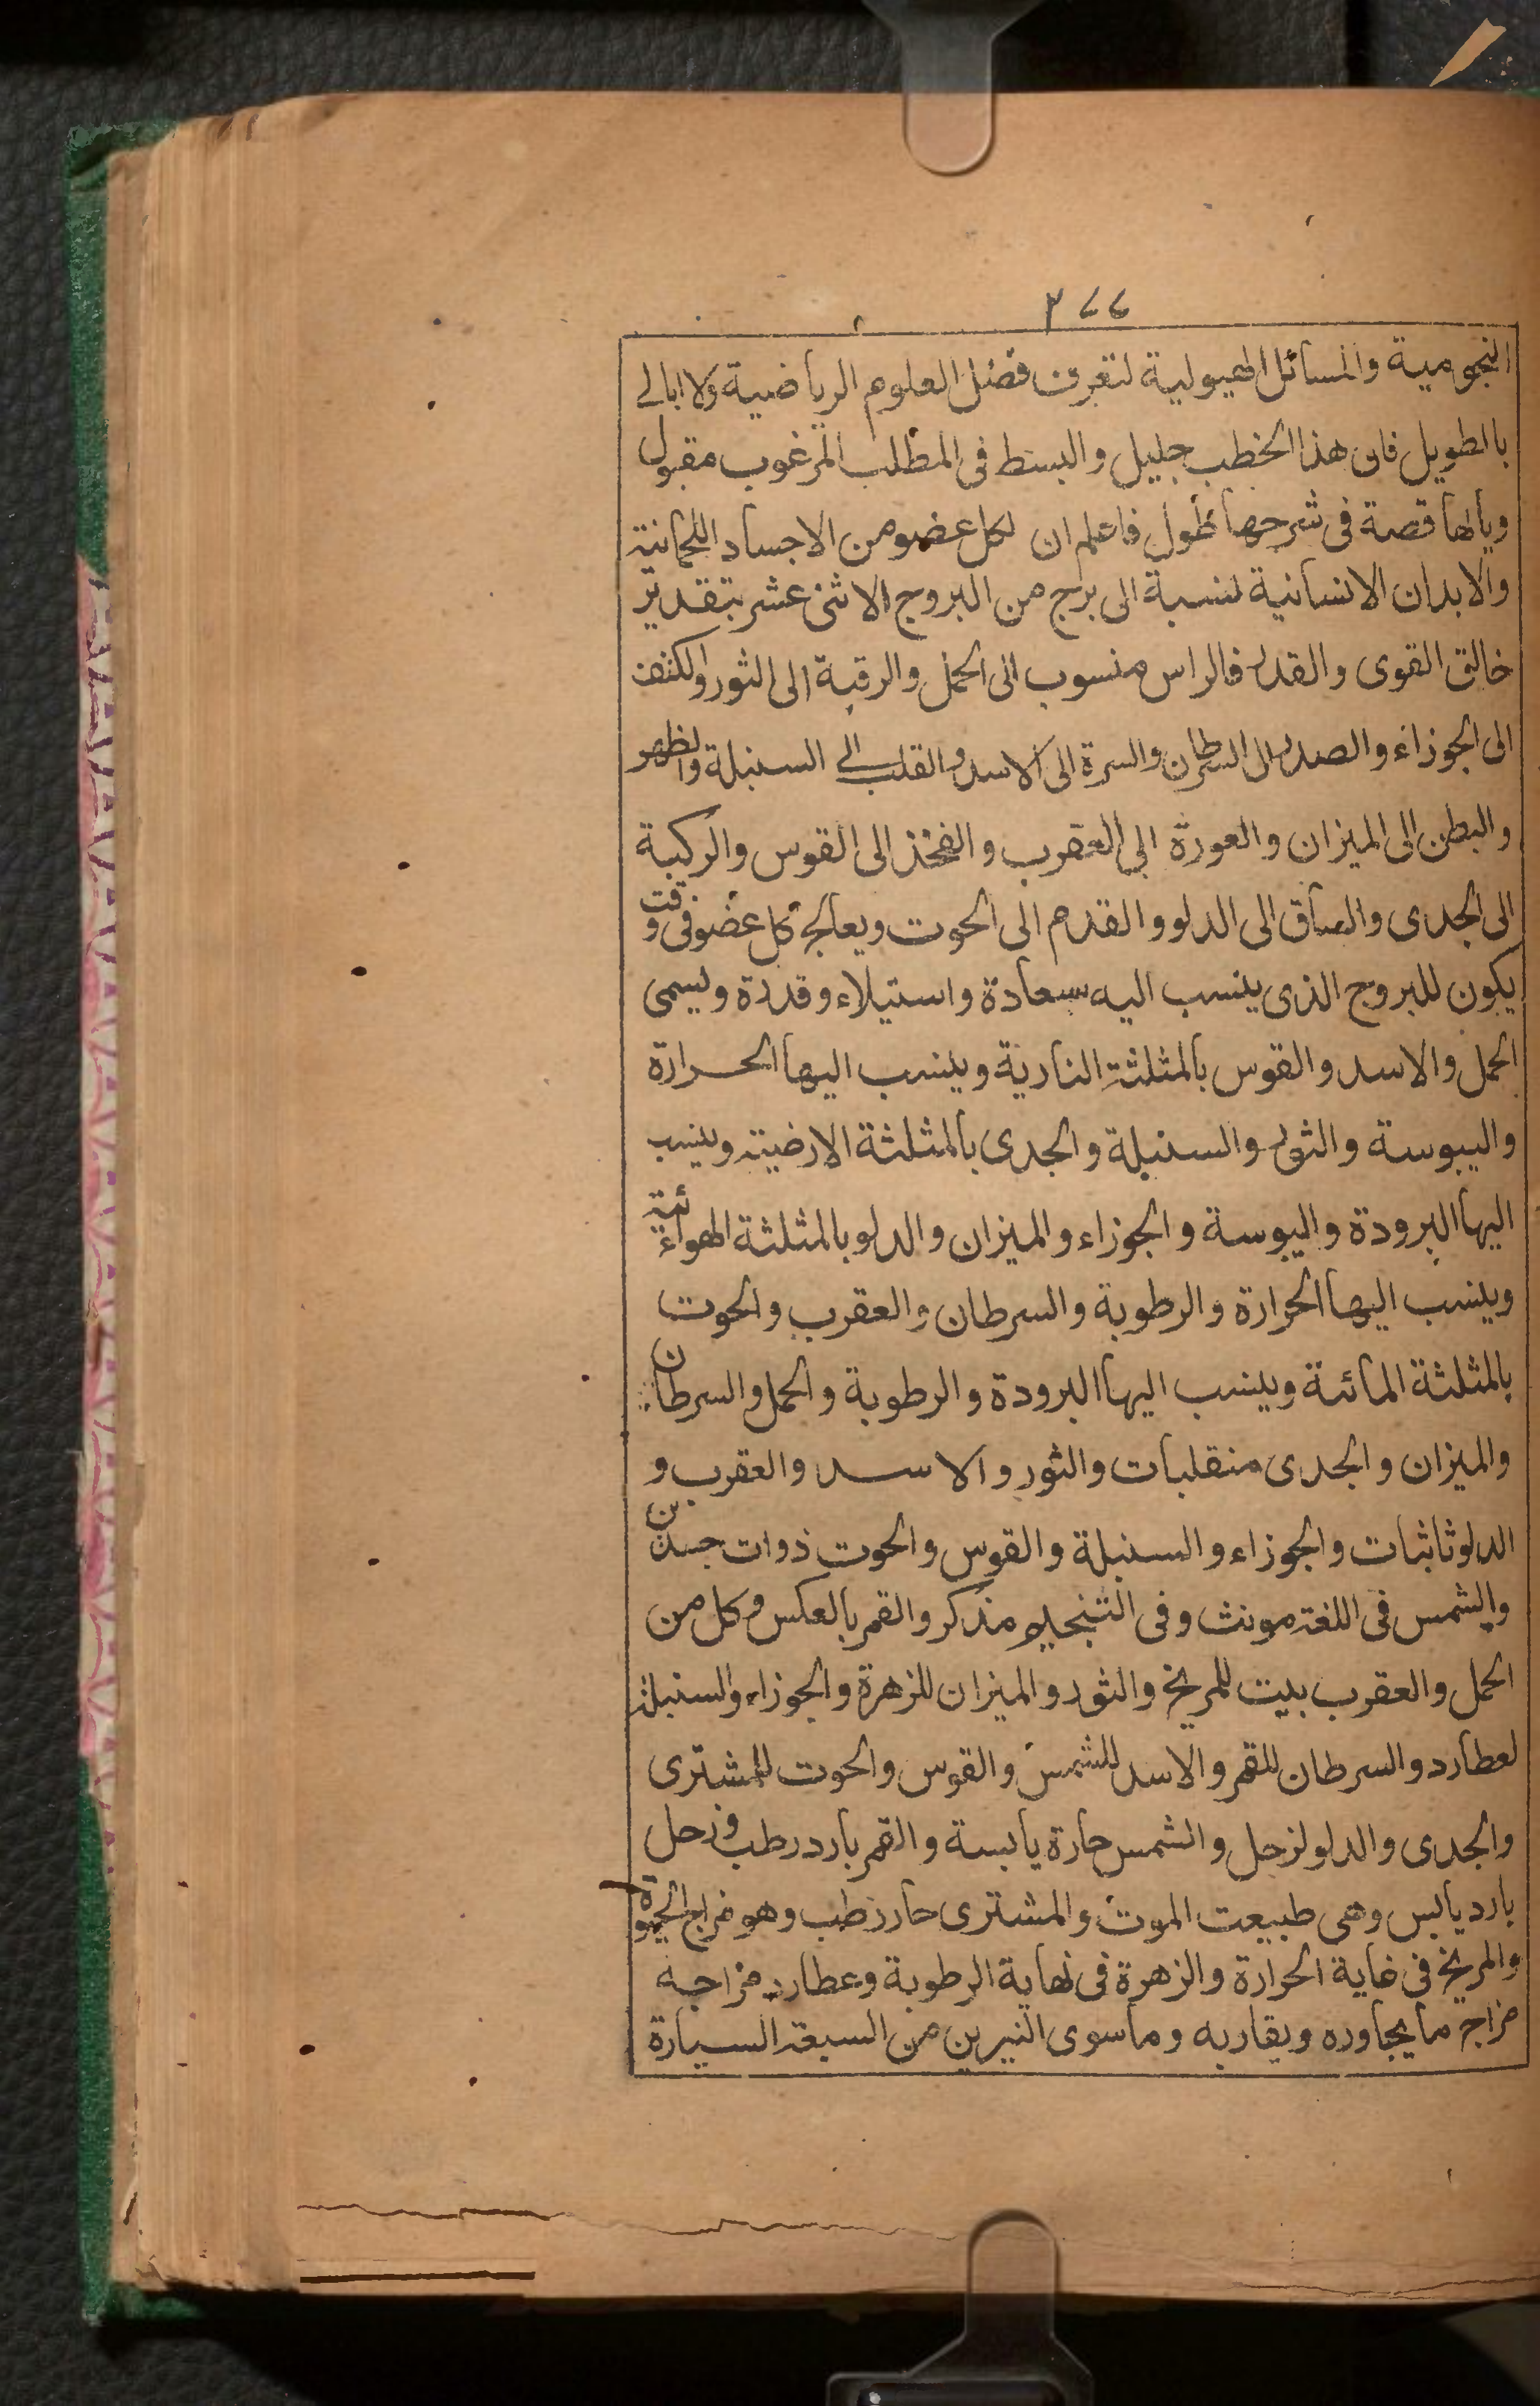 ٣٧٧
النجومية والمسائل الهيولية لتعرف فضل العلوم الرياضية ولا ابالى
بالطويل فان هذا الخطب جليل والبسط فى المطلب المرغوب مقبول
ويالها قصة فى شرحها طول فاعلم ان لكل عضو من الاجساد اللحمانية
والابدان الانسانية لنسبة الى برج من البروج الاثنى عشر بتقدير
خالق القوى والقدر فالراس منسوب الى الحمل والرقبة الى الثور والكتف
الى الجوزاء والصدر الى السرطان والسرة الى الاسد والقلب الى السنبلة والظهر
والبطن الى الميزان والعورة الى العقرب والفخذ الى القوس والركبة
الى الجدى والساق الى الدلو والقدم الى الحوت ويعالج كل عضو فى وقت
يكون للبروج الذى ينسب اليه سعادة واستيلاء وقدرة ويسمى
الحمل والاسد والقوس بالمثلثة النارية وينسب اليها الحرارة
واليبوسة والثور والسنبلة والجدى بالمثلثة الارضية وينسب
اليها البرودة واليبوسة والجوزاء والميزان والدلو بالمثلثة الهوائية
وينسب اليها الحرارة والرطوبة والسرطان والعقرب والحوت
بالمثلثة المائة وينسب اليها البرودة والرطوبة والحمل والسرطان
والميزان والجدى منقلبات والثور والاسد والعقرب و
الدلو ثابثات والجوزاء والسنبلة والقوس والحوت ذوات جسدين
والشمس فى اللغة مونث وفى التنجيم مذكر والقمر بالعكس وكل من
الحمل والعقرب بيت للمريخ والثور والميزان للزهرة والجوزاء والسنبلة
لعطارد والسرطان للقمر والاسد للشمس والقوس والحوت للمشترى
والجدى والدلو لزحل والشمس حارة يابسة والقمر بارد رطب وزحل
بارد يابس وهى طبيعت الموت والمشترى حار رطب وهو مزاج الحيوة
والمريخ فى غاية الحرارة والزهرة فى نهاية الرطوبة وعطارد مزاجه
مزاج ما يجاوره ويقاربه وما سوى النيرين من السبعة السيارة